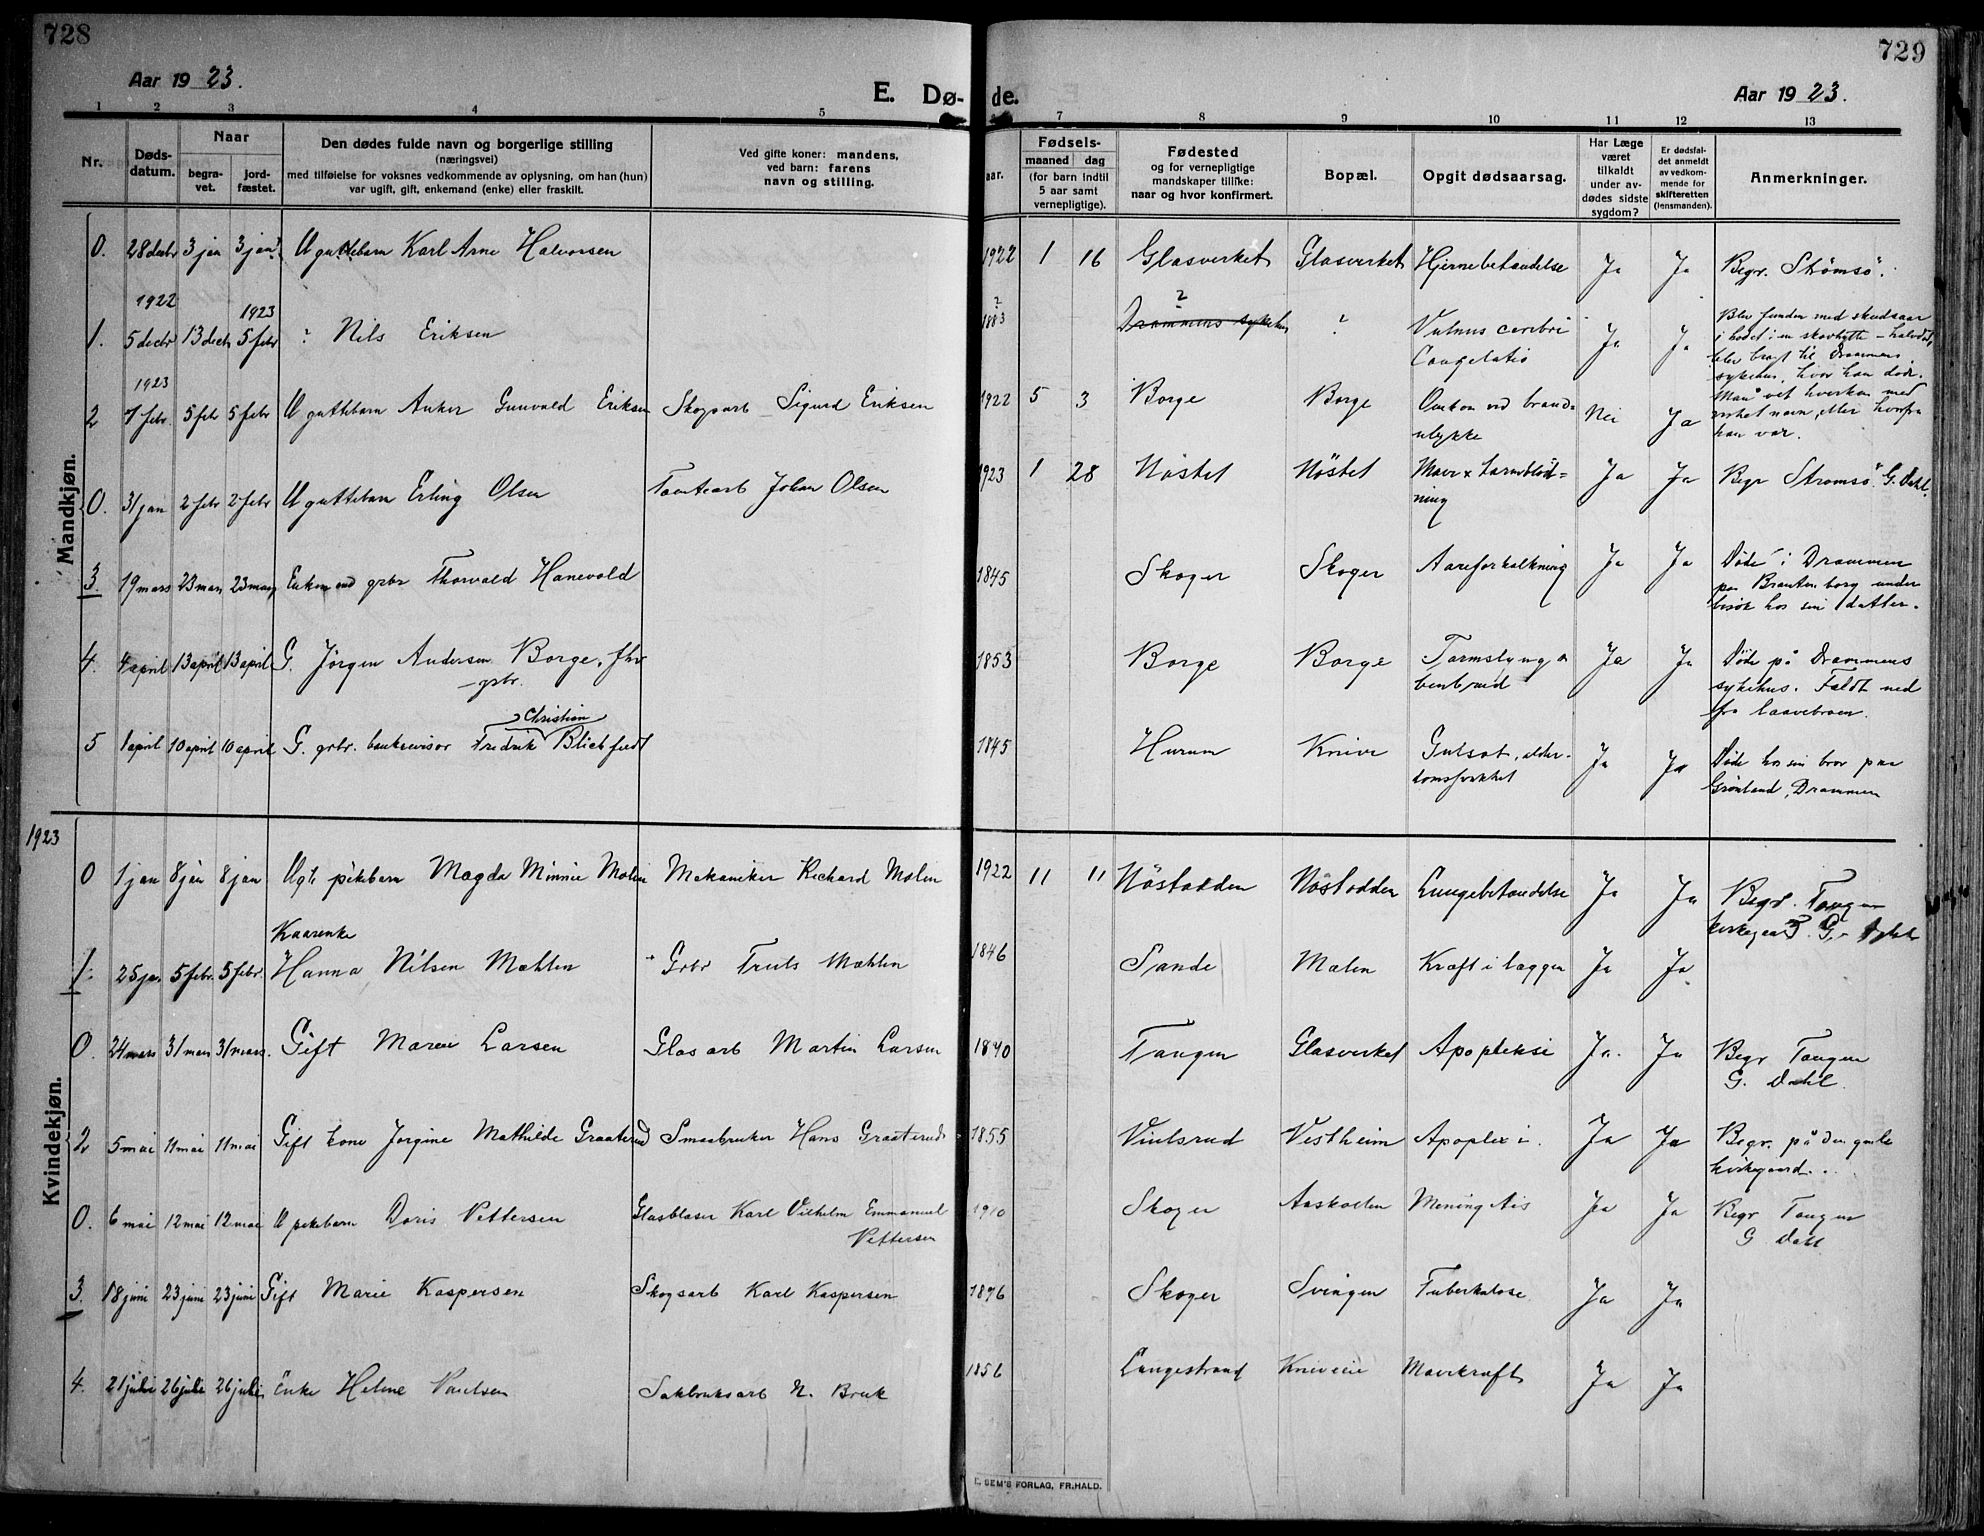 728
729
Aar 1923.
E. Dø-
de.
Aar 1923.
1 2 3 4 5 7 8 9 10 11 12 13
Nr.
Døds-
datum.
Naar
begra-
vet.
jord-
fæstet.
Den dødes fulde navn og borgerlige stilling
(næringsvei)
med tilføielse for voksnes vedkommende av oplysning, om han (hun)
var ugift, gift, enkemand (enke) eller fraskilt.
Ved gifte koner: mandens,
ved barn: farens
navn og stilling.
aar.
Fødsels-
maaned dag
(for barn indtil
5 aar samt
vernepligtige).
Fødested
og for vernepligtige
mandskaper tillike:
naar og hvor konfirmert.
Bopæl.
Opgit dødsaarsag.
Har Læge
været
tilkaldt
under av-
dødes sidste
sygdom?
Er dødsfal-
det anmeldt
av vedkom-
mende for
skifteretten
(lensmanden).
Anmerkninger.
Mandkjøn.
0. 28 decbr 3 jan 3 jan U guttebarn Karl Arne Halvorsen 1922 1 16 Glasverket Glasverket Hjernebetændelse Ja Ja Begr. Strømsø.
1922
1923
1. 5 decbr 13 decb 5 febr ? Nils Eriksen ? 1883 ? Drammens sykehus ? Vulnus cerebri Ja Ja Blev funden med skudsaar
Congelatio i hodet i en skovhytte – halvdød,
blev bragt til Drammens
sykehus, hvor han døde.
1923
2 1 febr. 5 febr 5 febr U guttebarn Anker Gunvald Eriksen Skogsarb Sigurd Eriksen 1922 5 3 Borge Borge Omkom ved brand- Nei Ja Man vet hverken med
ulykke navn, eller hvorfra
han var.
0. 31 jan 2 febr 2 febr U guttebarn Erling Olsen Tomtearb Johan Olsen 1923 1 28 Nøstet Nøstet Mave x tarmblød- Ja Ja Begr Strømsø. G. Dahl.
ning
3. 19 mars 23 mars 23 mars Enkemand grbr Thorvald Hanevold 1845 Skoger Skoger Aareforkalkning Ja Ja Døde i Drammen
paa Brantenborg under
besøk hos sin datter.
4. 4 april 13 april 13 april G. Jörgen Andersen Borge, fhv 1853 Borge Borge Tarmslyng o Ja Ja Døde på Drammens
grbr. benbrud sykehus. Faldt ned
fra laavebroen.
5 1 april 10 april 10 april G. grbr. bankrevisor Fredrik Christian Blichfeldt 1845 Hurum Knive Gulsot, alder- Ja Ja Døde hos sin bror paa
domssvakhet Grønland, Drammen
1923
Kvindekjøn.
0 1 jan 8 jan 8 jan Ugt. pikebarn Magda Minnie Molin Mekaniker Richard Molin 1922 11 11 Nøstodden Nøstodden Lungebetændelse Ja Ja Begr. Tangen
kirkegaard. G. Dahl
Kaarenke
1. 25 jan 5 febr. 5 febr. Hanna Nilsen Mæhlen Grbr Truls Mæhlen 1846 Sande Mælen Kræft i læggen Ja Ja
0. 24 mars 31 mars 31 mars. Gift Maren Larsen Glasarb Martin Larsen 1840 Tangen Glasverket Apopleksi Ja. Ja Begr Tangen
G. Dahl.
2 5 mai 11 mai 11 mai Gift kone Jorgine Mathilde Graaterud Smaabruker Hans Graaterud 1855 Vinlsrud Vestheim Apoplexi. Ja Ja Begr. på den gamle
kirkegaard..
0. 6 mai 12 mai 12 mai U pikebarn Doris Pettersen Glasblaser Karl Vilhelm Emmanuel 1910 Skoger Aaskollen Meningitis Ja Ja Begr Tangen
Pettersen G Dahl
3. 18 juni 23 juni 23 juni Gift Marie Kaspersen Skogsarb Karl Kaspersen 1896 Skoger Svingen Tuberkulose Ja Ja
4. 21 juli 26 juli 26 juli Enke Helene Paulsen Sakbruksarb N. Bruk 1856 Langestrand Kniveeie Mavekræft Ja Ja
E. SEM'S FORLAG, FR.HALD.